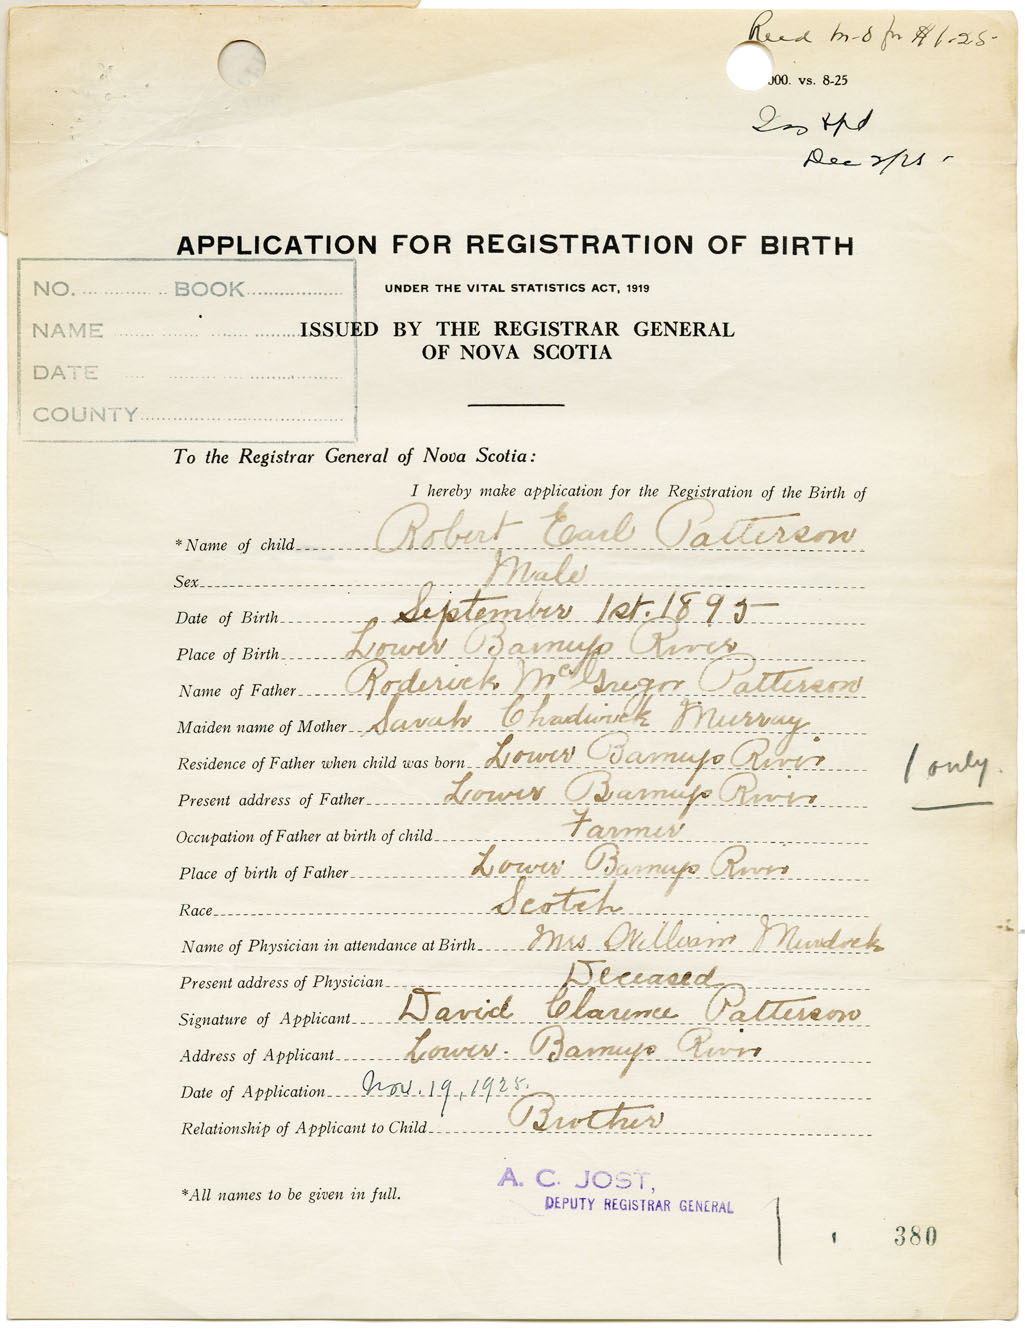 Recd M-O for $1.25
000. vs. 8-25
Dec 2/25
APPLICATION FOR REGISTRATION OF BIRTH
UNDER THE VITAL STATISTICS ACT, 1919
ISSUED BY THE REGISTRAR GENERAL
OF NOVA SCOTIA
NO. BOOK
NAME
DATE
COUNTY
To the Registrar General of Nova Scotia:
I hereby make application for the Registration of the Birth of
*Name of child Robert Earl Patterson
Sex Male
Date of Birth September 1st. 1895
Place of Birth Lower Barneys River
Name of Father Roderick McGregor Patterson
Maiden name of Mother Sarah Chadwick Murray
Residence of Father when child was born Lower Barneys River
Present address of Father Lower Barneys River
1 only.
Occupation of Father at birth of child Farmer
Place of birth of Father Lower Barneys River
Race Scotch
Name of Physician in attendance at Birth Mrs William Murdock
Present address of Physician Deceased
Signature of Applicant David Clarence Patterson
Address of Applicant Lower. Barneys River
Date of Application Nov. 19, 1925.
Relationship of Applicant to Child Brother
*All names to be given in full.
A. C. JOST,
DEPUTY REGISTRAR GENERAL
380